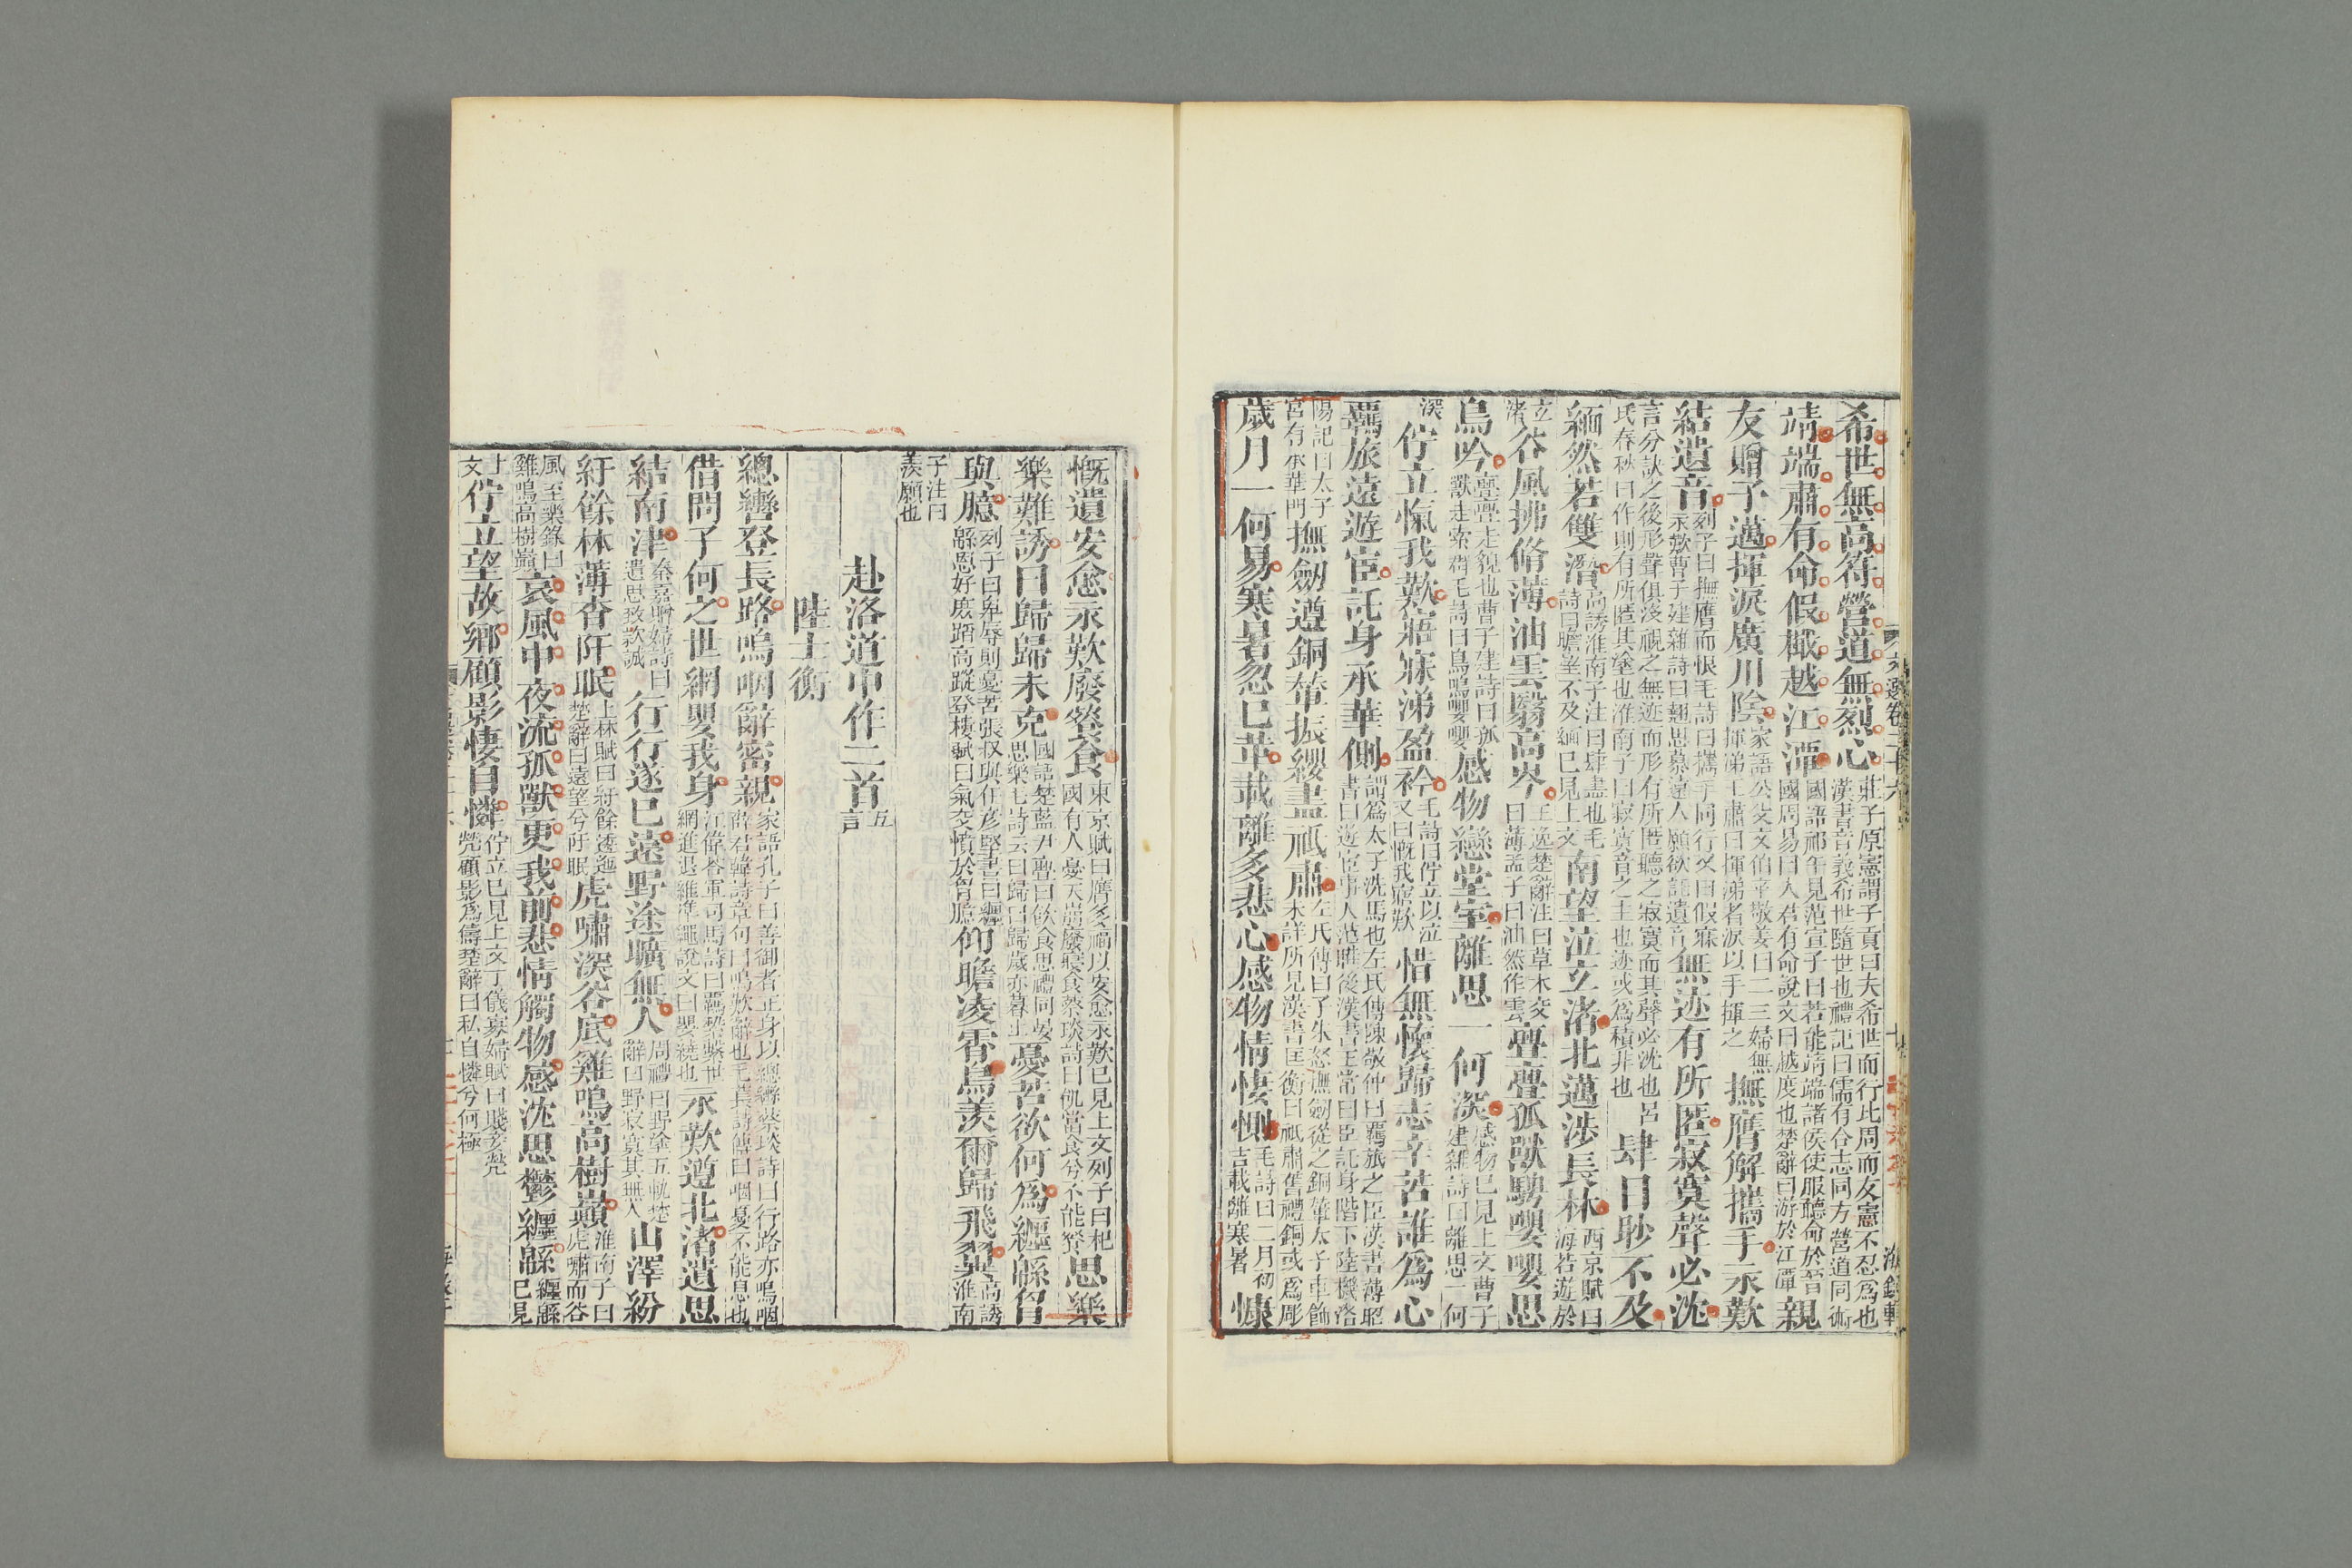 希世無高符營道無烈心莊子原憲謂子貢曰夫希世而行比周而友憲不忍爲也漢書音義希世隨世也禮記曰儒有合志同方營道同術
靖端肅有命假檝越江潭國語祁午見范宣子曰若能靖端諸侯使服聽命於晉國周易曰大君有命說文曰越度也楚辭曰游於江潭親
友贈予邁揮淚廣川陰家語公父文伯卒敬姜曰二三婦無揮涕王肅曰揮涕者淚以手揮之撫膺解攜手永歎
結遺音列子曰撫膺而恨毛詩曰攜手同行又曰假寐永歎曹子建雜詩曰翹思慕遠人願欲託遺音無迹有所匿寂寞聲必沈
言分訣之後形聲俱沒視之無迹而形有所匿聽之寂寞而其聲必沈也呂氏春秋曰作則有所匿其塗也淮南子曰寂寞音之主也迹或爲積非也肆目眇不及
緬然若雙潛高誘淮南子注曰肆盡也毛詩曰瞻望不及緬已見上文南望泣玄渚北邁涉長林西京賦曰海若遊於
玄渚谷風拂脩薄油雲翳高岑王逸楚辭注曰草木交曰薄孟子曰油然作雲亹亹孤獸騁嚶嚶思
鳥吟亹亹走貌也曹子建詩曰孤獸走索羣毛詩曰鳥鳴嚶嚶感物戀堂室離思一何深感物已見上文曹子建雜詩曰離思一何
深佇立愾我歎寤寐涕盈衿毛詩曰佇立以泣又曰愾我寤歎惜無懷歸志辛苦誰爲心
羈旅遠遊宦託身承華側謂爲太子洗馬也左氏傳陳敬仲曰羈旅之臣漢書薄昭書曰遊宦事人范曄後漢書王常曰臣託身陛下陸機洛
陽記曰太子宮有承華門撫劒遵銅輦振纓盡祗肅左氏傳曰子朱怒撫劒從之銅輦太子車飾未詳所見漢書匡衡曰祗肅舊禮銅或爲彫
歲月一何易寒暑忽已革載離多悲心感物情悽惻毛詩曰二月初吉載離寒暑慷
慨遺安愈永歎廢餐食東京賦曰膺多福以安愈永歎已見上文列子曰杞國有人憂天崩廢寢食蔡琰詩曰飢當食兮不能餐思樂
樂難誘曰歸歸未克國語楚藍尹亹曰飲食思禮同宴思樂毛詩云曰歸曰歸歲亦暮止憂苦欲何爲纏緜胷
與臆列子曰卑辱則憂苦張叔與任彦堅書曰纏緜恩好庶蹈高蹤登樓賦曰氣交憤於胷臆仰瞻凌霄鳥羨爾歸飛翼高誘淮南
子注曰羨願也
赴洛道中作二首五言
陸士衡
總轡登長路嗚咽辭密親家語孔子曰善御者正身以總轡蔡琰詩曰行路亦嗚咽薛君韓詩章句曰嗚歎辭也毛萇詩傳曰咽憂不能息也
借問子何之世網嬰我身江偉答軍司馬詩曰羈縶繫世網進退維準繩說文曰嬰繞也永歎遵北渚遺思
結南津秦嘉贈婦詩曰遺思致款誠行行遂已遠野途曠無人周禮曰野塗五軌楚辭曰野寂寞其無人山澤紛
紆餘林薄杳阡眠上林賦曰紆餘逶迤楚辭曰遠望兮阡眠虎嘯深谷底雞鳴高樹巔淮南子曰虎嘯而谷
風至樂錄曰雞鳴高樹巔哀風中夜流孤獸更我前悲情觸物感沈思鬱纏緜纏緜已見
上文佇立望故鄉顧影悽自憐佇立已見上文丁儀寡婦賦曰賤妾煢煢顧影爲儔楚辭曰私自憐兮何極